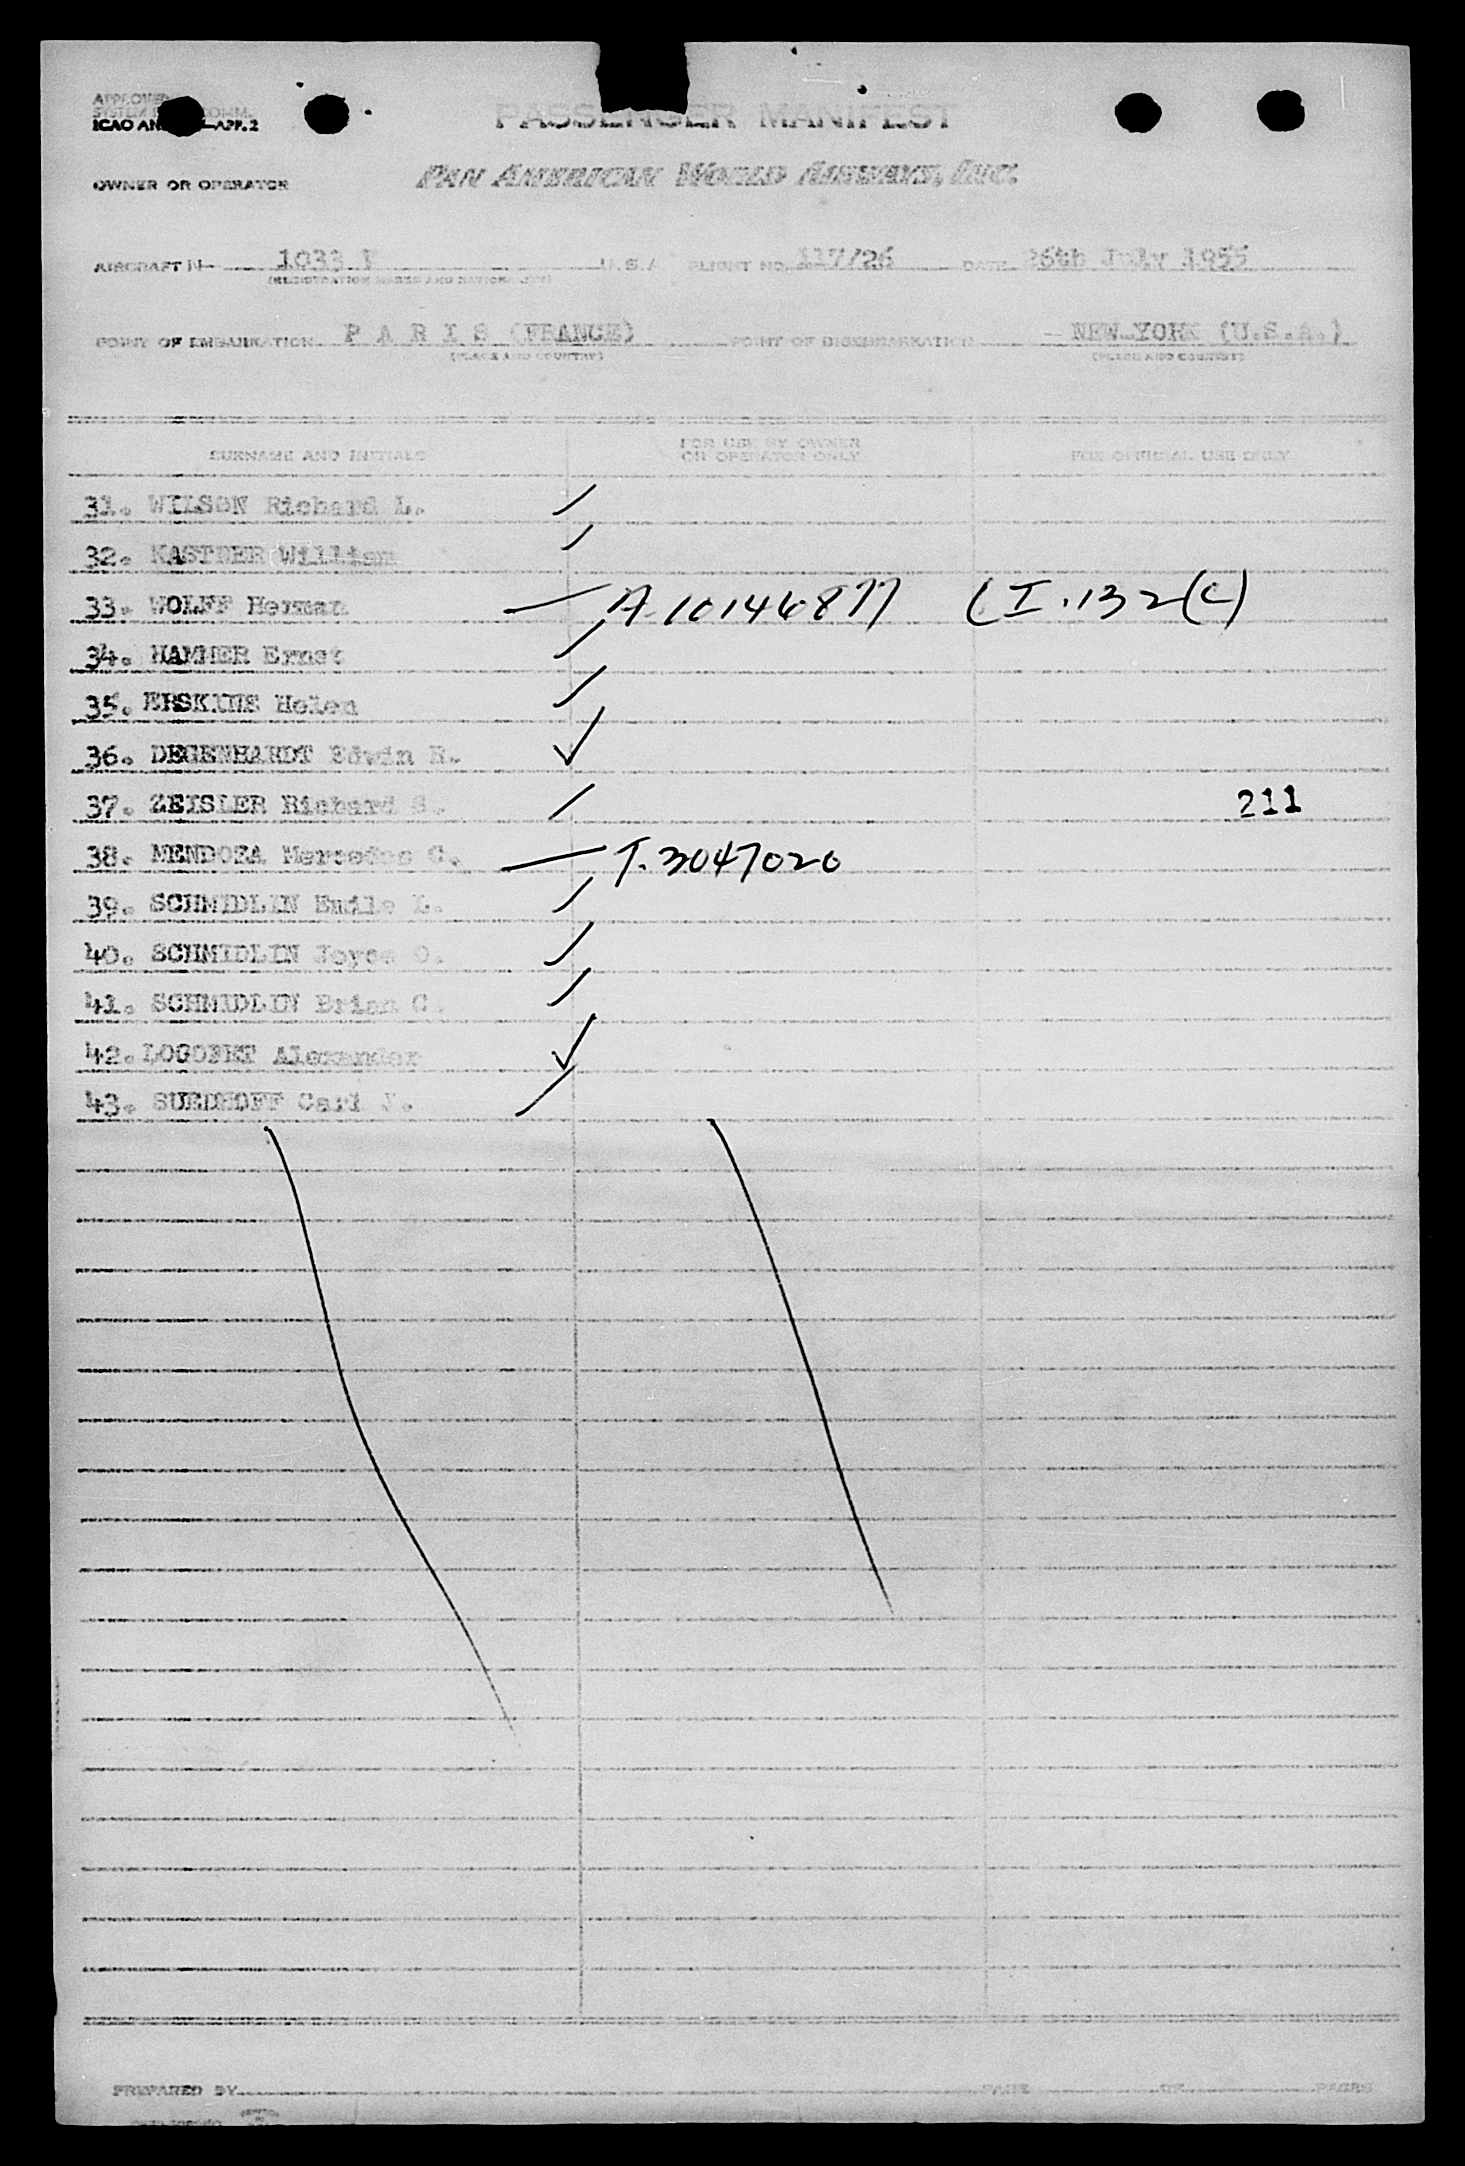 APPROVED
ICAO AN APP. 2
PASSENGER MANIFEST
OWNER OR OPERATOR PAN AMERICAN WORLD AIRWAYS, INC.
AIRCRAFT N 1033 U.S.A. FLIGHT NO. 117/26 DATE 26th July 1955
(REGISTRATION MARKS AND NATIONALITY)
POINT OF EMBARKATION P A R I S (FRANCE) POINT OF DISEMBARKATION NEW YORK (U.S.A.)
(PLACE AND COUNTRY) (PLACE AND COUNTRY)
SURNAME AND INITIALS FOR USE BY OWNER OR OPERATOR ONLY FOR OFFICIAL USE ONLY
31. WILSON Richard L.
32. KASTNER William
33. WOLFF Herman A-10146877 (I.132(c)
34. HAMMER Ernst
35. ERSKINE Helen
36. DEGENHARDT Edwin R.
37. ZEISLER Richard S. 211
38. MENDOZA Mercedes C. T.3047020
39. SCHMIDLIN Emile L.
40. SCHMIDLIN Joyce O.
41. SCHMIDLIN Brian C.
42. LOGOFET Alexander
43. SUEDHOFF Carl J.
PREPARED BY PAGE OF PAGES